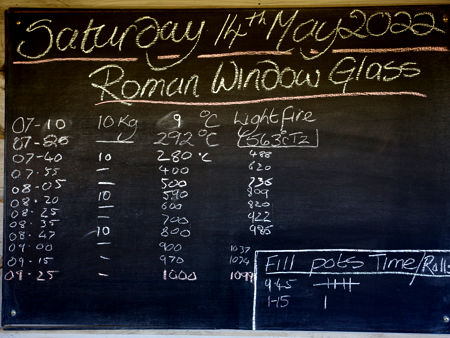 Saturday 14th May 2022
Roman Window Glass
07-10 10 Kg 9 °C Light fire
292 °C
07-40 10 280 °C 488
07-55 — 400 620
08-05 — 500 736
08-20 10 590 809
08-25 — 600 820
08-35 — 700 922
08-47 10 800 986
09-00 — 900 1037
09-15 — 970 1074
09-25 — 1000 1099
Fill pots Time/Roll
9.45
1-15 |